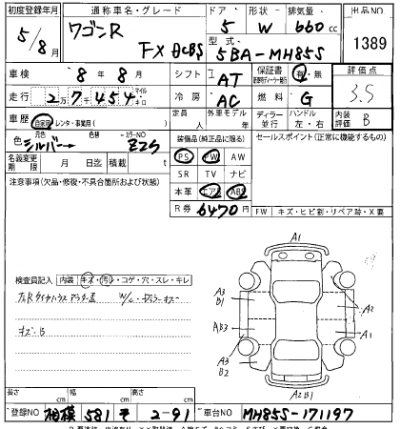 初度登録年月 通称車名・グレード ドア 形状 排気量 出品NO
5/8月 ワゴンR FX 5 W 660 cc 1389
型式 5BA-MH85S
車検 8年 8月 シフト AT 保証書 有・無 評価点 3.5
走行 2万7454 マイル キロ 冷房 AC 燃料 G 内装評価 B
車歴 自家用 レンタ・事業用( ) 定員 人 外車モデル 年 ディーラー 並行 ハンドル 左・右
色 元色 シルバー 色替 カラーNO Z2S 装備品(純正品に限る) セールスポイント(正常に機能するもの)
名義変更期限 月 日迄 積載 t PS PW AW
注意事項(欠品・修復・不具合箇所および状態) SR TV ナビ
本革 エアB ABS
R券 6470円 FW キズ・ヒビ割・リペア跡・X要
A1
検査員記入 内装 キズ・汚レ・コゲ・穴・スレ・キレ
A3 B1 A2
キズ・B
AB3 A1
A3 B2
A2 B1
長さ cm 幅 cm 高さ cm
登録NO 相模 581 そ 2-91 車台NO MH85S-171197